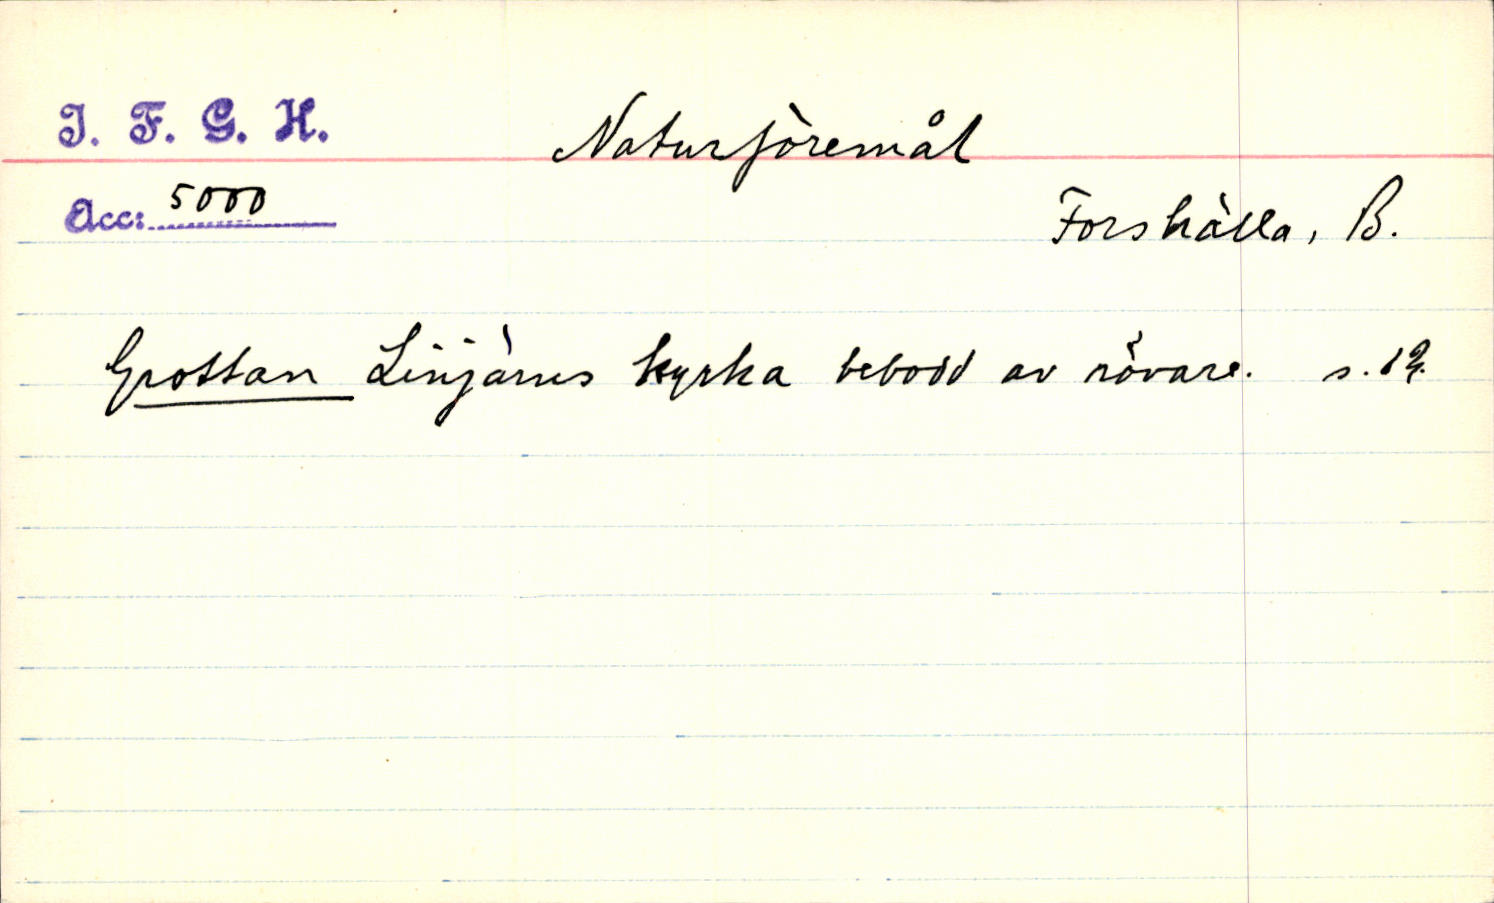 I. F. G. H.
Naturföremål
Acc: 5000
Forshälla, B.
Grottan Linjärns kyrka bebodd av rövare. s. 12.